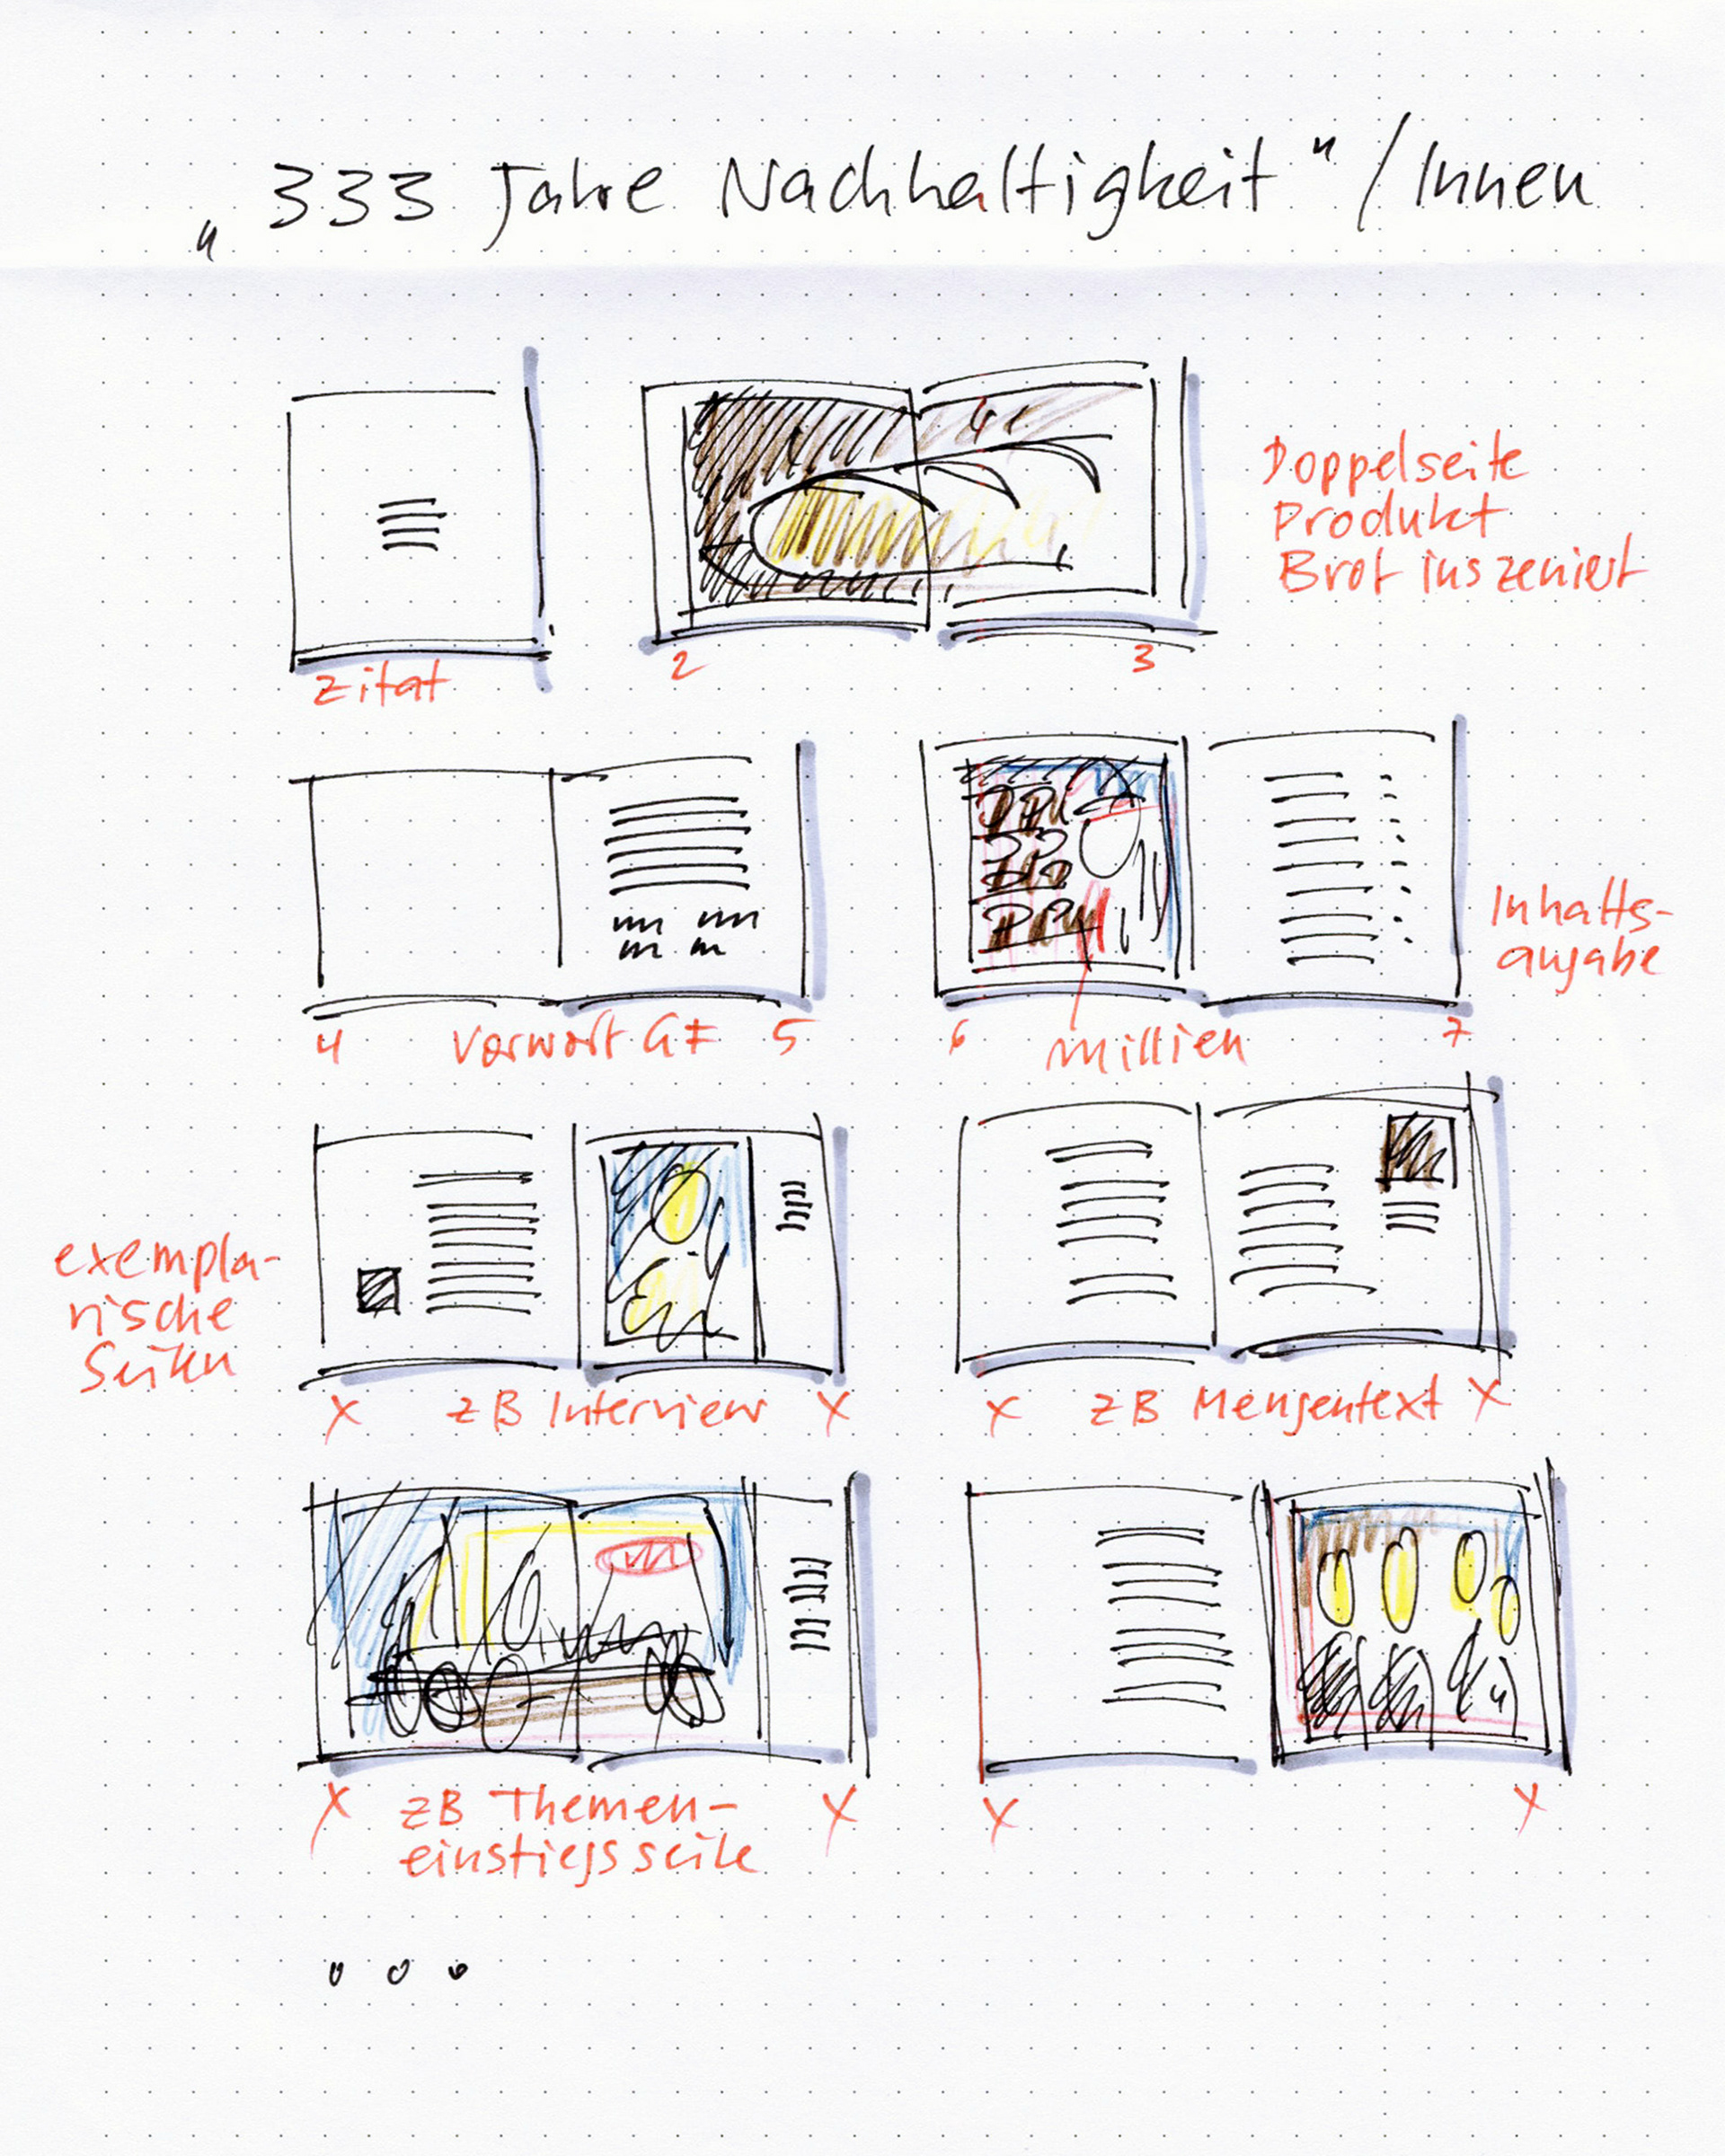 „333 Jahre Nachhaltigkeit“ / Innen
Doppelseite
Produkt
Brot inszeniert
Zitat
2
3
Inhalts-
angabe
4 Vorwort GF 5
6 Millien 7
exempla-
rische
Seiten
X zB Interview X
X zB Mengentext X
X zB Themen- X
einstiegsseite
X X